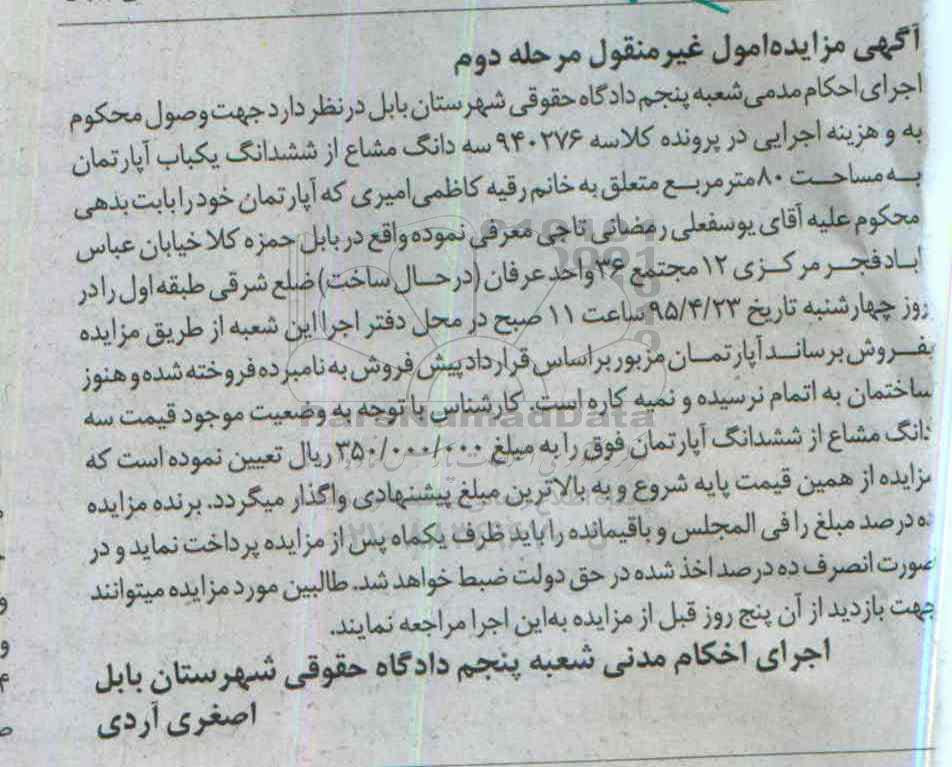 آگهی مزایده اموال غیر منقول مرحله دوم
اجرای احکام مدمی شعبه پنجم دادگاه حقوقی شهرستان بابل در نظر دارد جهت وصول محکوم
به و هزینه اجرایی در پرونده کلاسه ۹۴۰۲۷۶ سه دانگ مشاع از ششدانگ یکباب آپارتمان
به مساحت ۸۰ متر مربع متعلق به خانم رقیه کاظمی امیری که آپارتمان خود را بابت بدهی
محکوم علیه آقای یوسفعلی رمضانی تاجی معرفی نموده واقع در بابل حمزه کلا خیابان عباس
آباد فجر مرکزی ۱۲ مجتمع ۳۶ واحد عرفان (در حال ساخت) ضلع شرقی طبقه اول را در
روز چهارشنبه تاریخ ۹۵/۴/۲۳ ساعت ۱۱ صبح در محل دفتر اجرا این شعبه از طریق مزایده
بفروش برساند آپارتمان مزبور بر اساس قرارداد پیش فروش به نامبرده فروخته شده و هنوز
ساختمان به اتمام نرسیده و نمیه کاره است. کارشناس با توجه به وضعیت موجود قیمت سه
دانگ مشاع از ششدانگ آپارتمان فوق را به مبلغ ۳۵۰/۰۰۰/۰۰۰ ریال تعیین نموده است که
مزایده از همین قیمت پایه شروع و به بالاترین مبلغ پیشنهادی واگذار میگردد. برنده مزایده
ده درصد مبلغ را فی المجلس و باقیمانده را باید ظرف یکماه پس از مزایده پرداخت نماید و در
صورت انصرف ده درصد اخذ شده در حق دولت ضبط خواهد شد. طالبین مورد مزایده میتوانند
جهت بازدید از آن پنج روز قبل از مزایده به این اجرا مراجعه نمایند.
اجرای اخکام مدنی شعبه پنجم دادگاه حقوقی شهرستان بابل
اصغری آردی
ParaNamadData